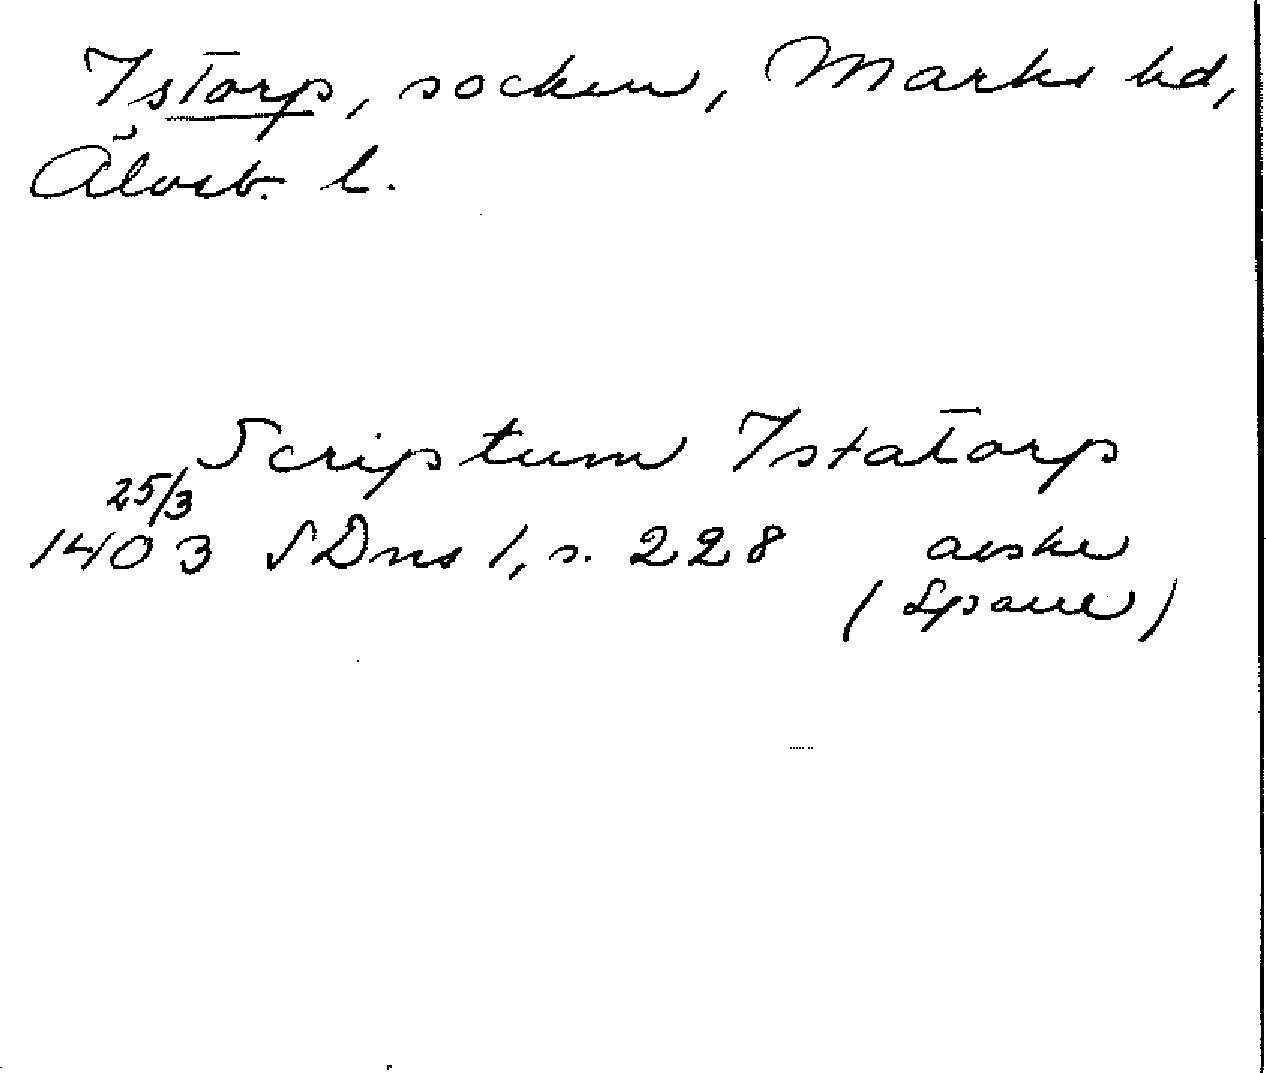 Istorp, socken, Marks hd,
Älvsb. l.
Scriptum Istatorp
25/3
1403 SDns 1, s. 228 avskr